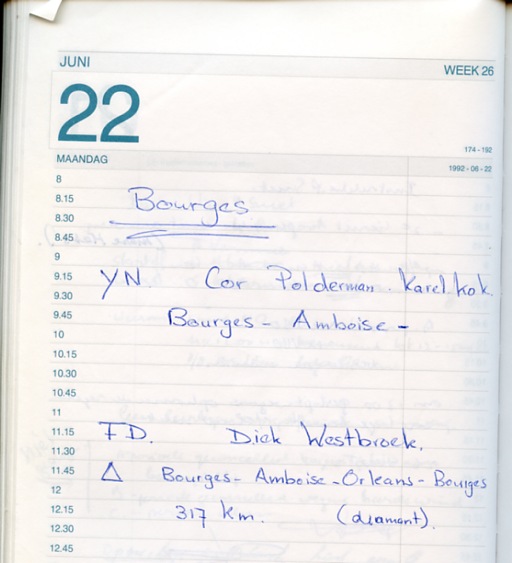 JUNI WEEK 26
22
174 - 192
MAANDAG 1992 - 06 - 22
8
8.15 Bourges
8.30
8.45
9
9.15 YN. Cor Polderman. Karel. kok.
9.30
9.45 Bourges - Amboise -
10
10.15
10.30
10.45
11
11.15 FD. Dick Westbroek.
11.30
11.45 Δ Bourges - Amboise - Orleans - Bourges
12
12.15 317 km. (diamant).
12.30
12.45